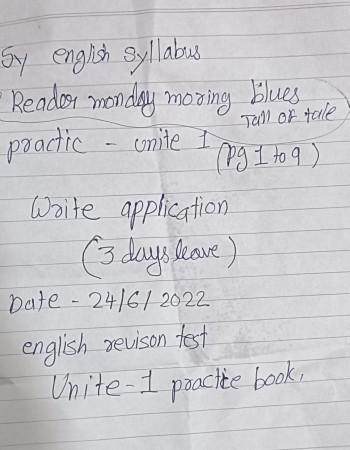 5y english syllabus
Reador monday moring blues
Tall or tale
practic - unite 1
(pg 1 to 9)
Write application
(3 days leave)
Date - 24/6/2022
english revison test
Unite-1 practice book,